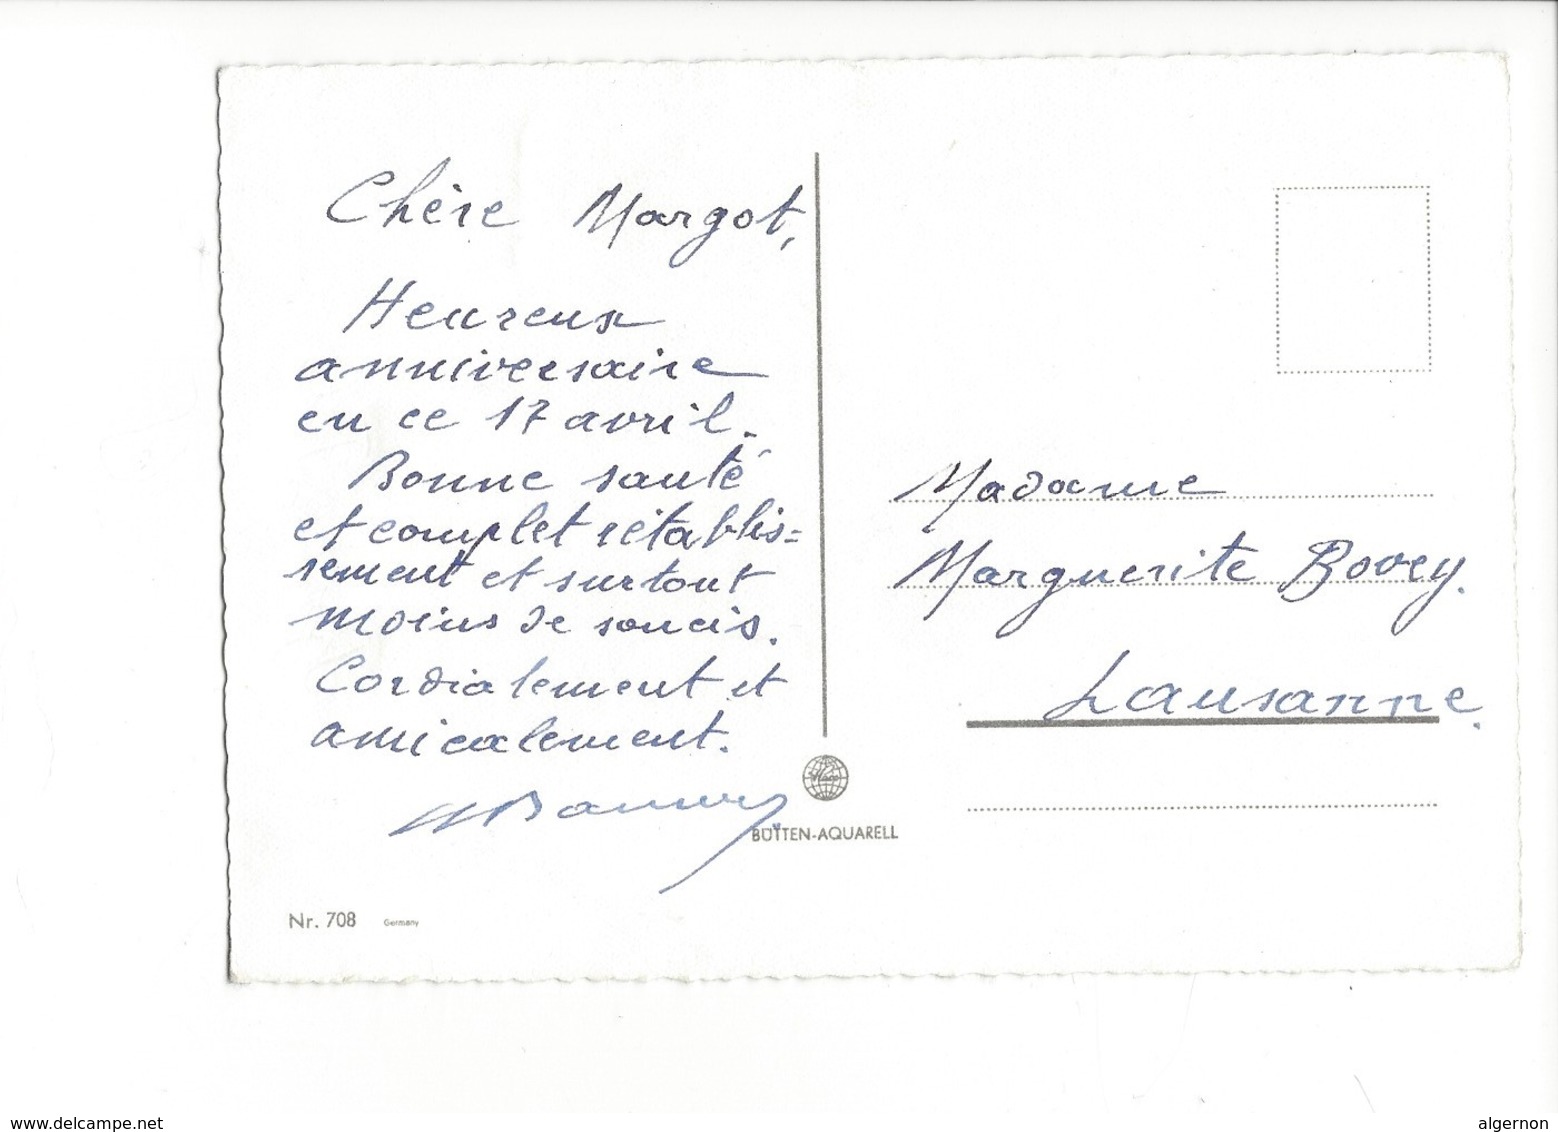 Chère Margot,
Heureux
anniversaire
en ce 17 avril.
Bonne santé
et complet rétablis=
sement et surtout
moins de soucis.
Cordialement et
amicalement.
Madame
Marguerite Bovey.
Lausanne.
BÜTTEN-AQUARELL
Nr. 708 Germany
www.delcampe.net
algernon